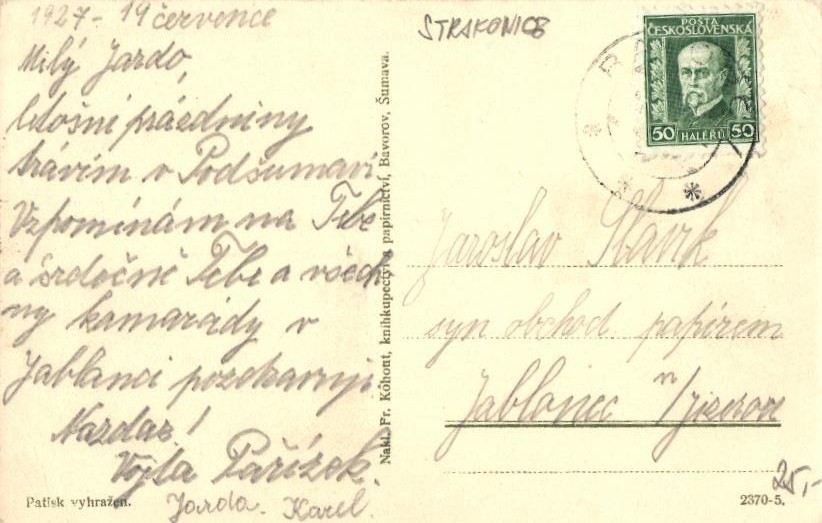 1927 - 19 července
Milý Jardo,
letošní prázdniny
trávím v Podšumaví.
Vzpomínám na Tebe
a srdečně Tebe a všech-
ny kamarády v
Jablonci pozdravuji.
Nazdar!
Vojta Pařízek.
Jarda. Karel.
Patisk vyhražen.
Nakl. Fr. Kohout, knihkupectví a papírnictví, Bavorov, Šumava.
STRAKONICE
POŠTA
ČESKOSLOVENSKÁ
50 HALÉŘŮ 50
Jaroslav Slavík
syn obchod papírem
Jablonec n/Jizerou
25,-
2370-5.